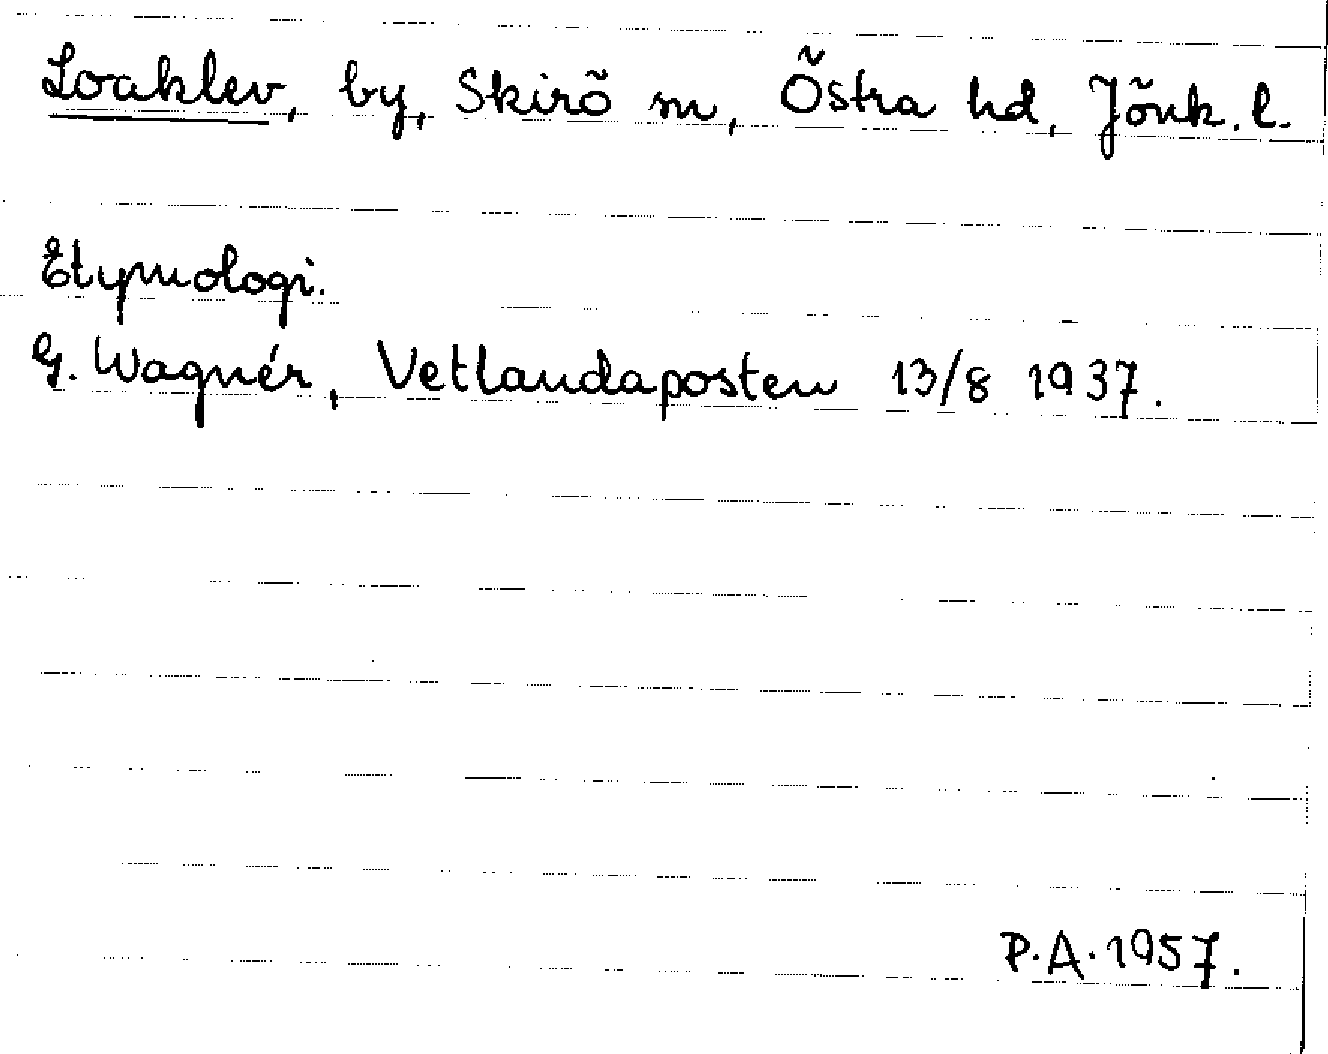 Loaklev, by, Skirõ sn, Õstra hd, Jõnk. l.
Etymologi.
G. Wagnér, Vetlandaposten 13/8 1937.
P.A. 1957.